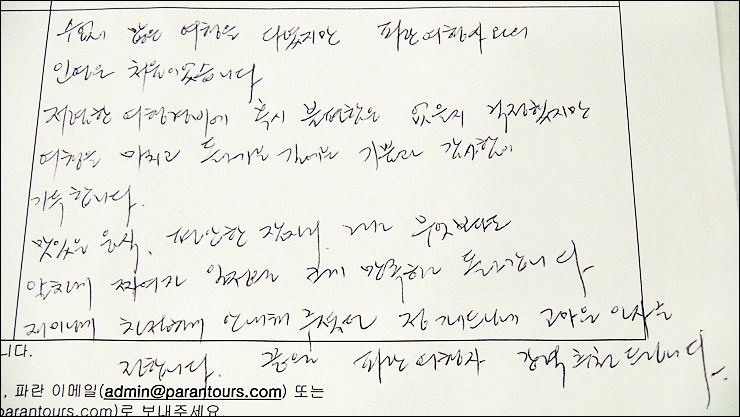 수없이 많은 여행을 다녔지만 파란여행사와의
인연은 처음이었습니다
저렴한 여행경비에 혹시 불편함은 없을지 걱정했지만
여행을 마치고 돌아가는 길에는 기쁨과 감사함이
가득합니다.
맛있는 음식, 편안한 잠자리, 그리고 무엇보다도
알차게 짜여진 일정 만족하고 돌아갑니다
재미나게 친절하게 안내해 주셨던 정 가이드님께 고마운 인사를
니다.
전합니다. 끝으로 파란여행사 강력 추천드립니다.
, 파란 이메일(admin@parantours.com) 또는
parantours.com)로 보내주세요